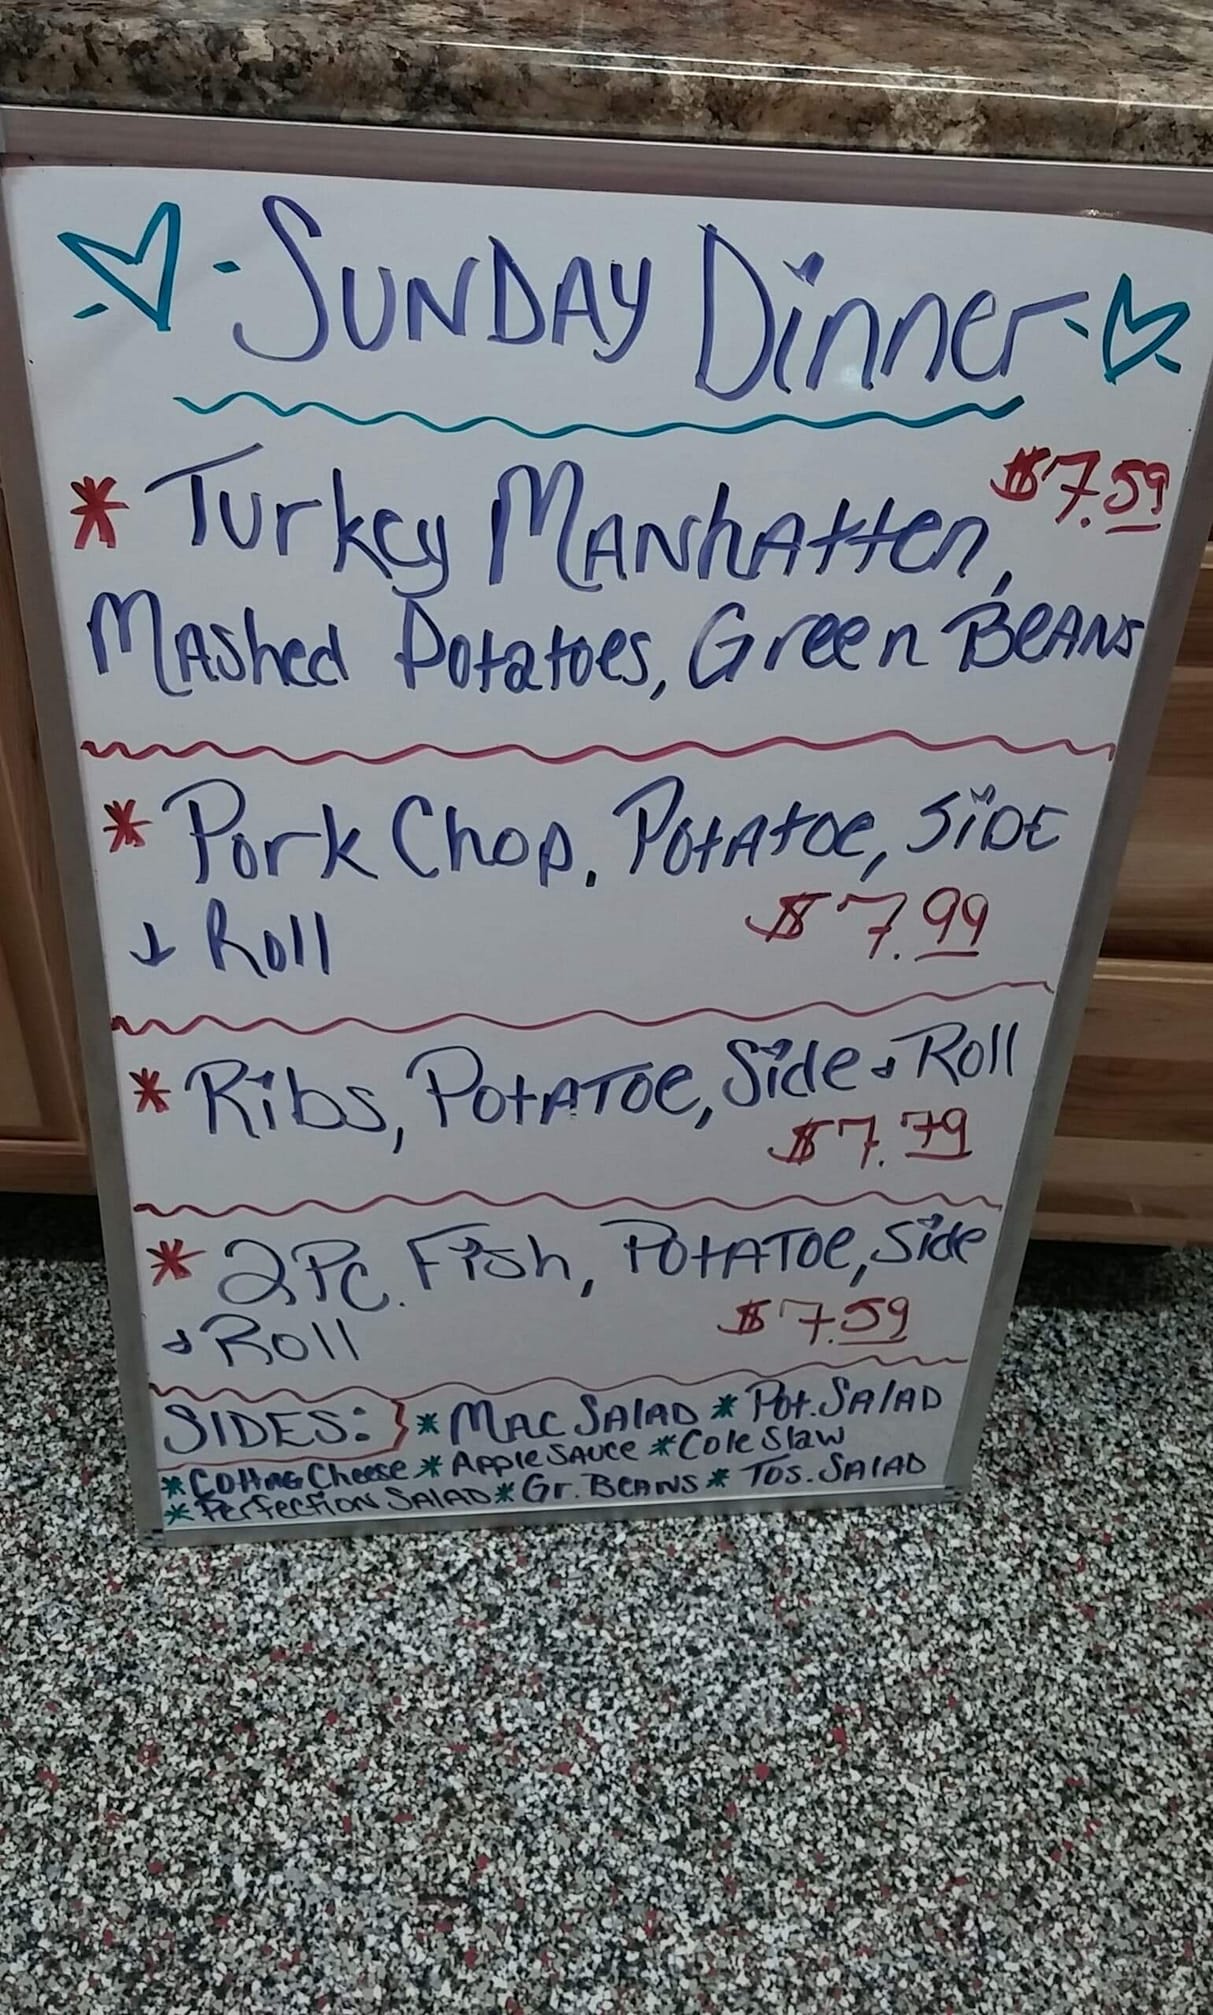 SUNDAY Dinner
* Turkey MANhAtten, $7.59
MAshed Potatoes, Green BEANS
* Pork Chop, POtAtoe, SiDE
+ Roll $7.99
* Ribs, POtATOe, Side + Roll
$7.79
* 2 PC. Fish, POtATOe, Side
+ Roll $7.59
SIDES: * MAC SAlAD * Pot. SAlAD
* COttAG Cheese * Apple SAUCe * Cole Slaw
* PerfectiON SAlAD * Gr. BEANS * TOS. SAlAD